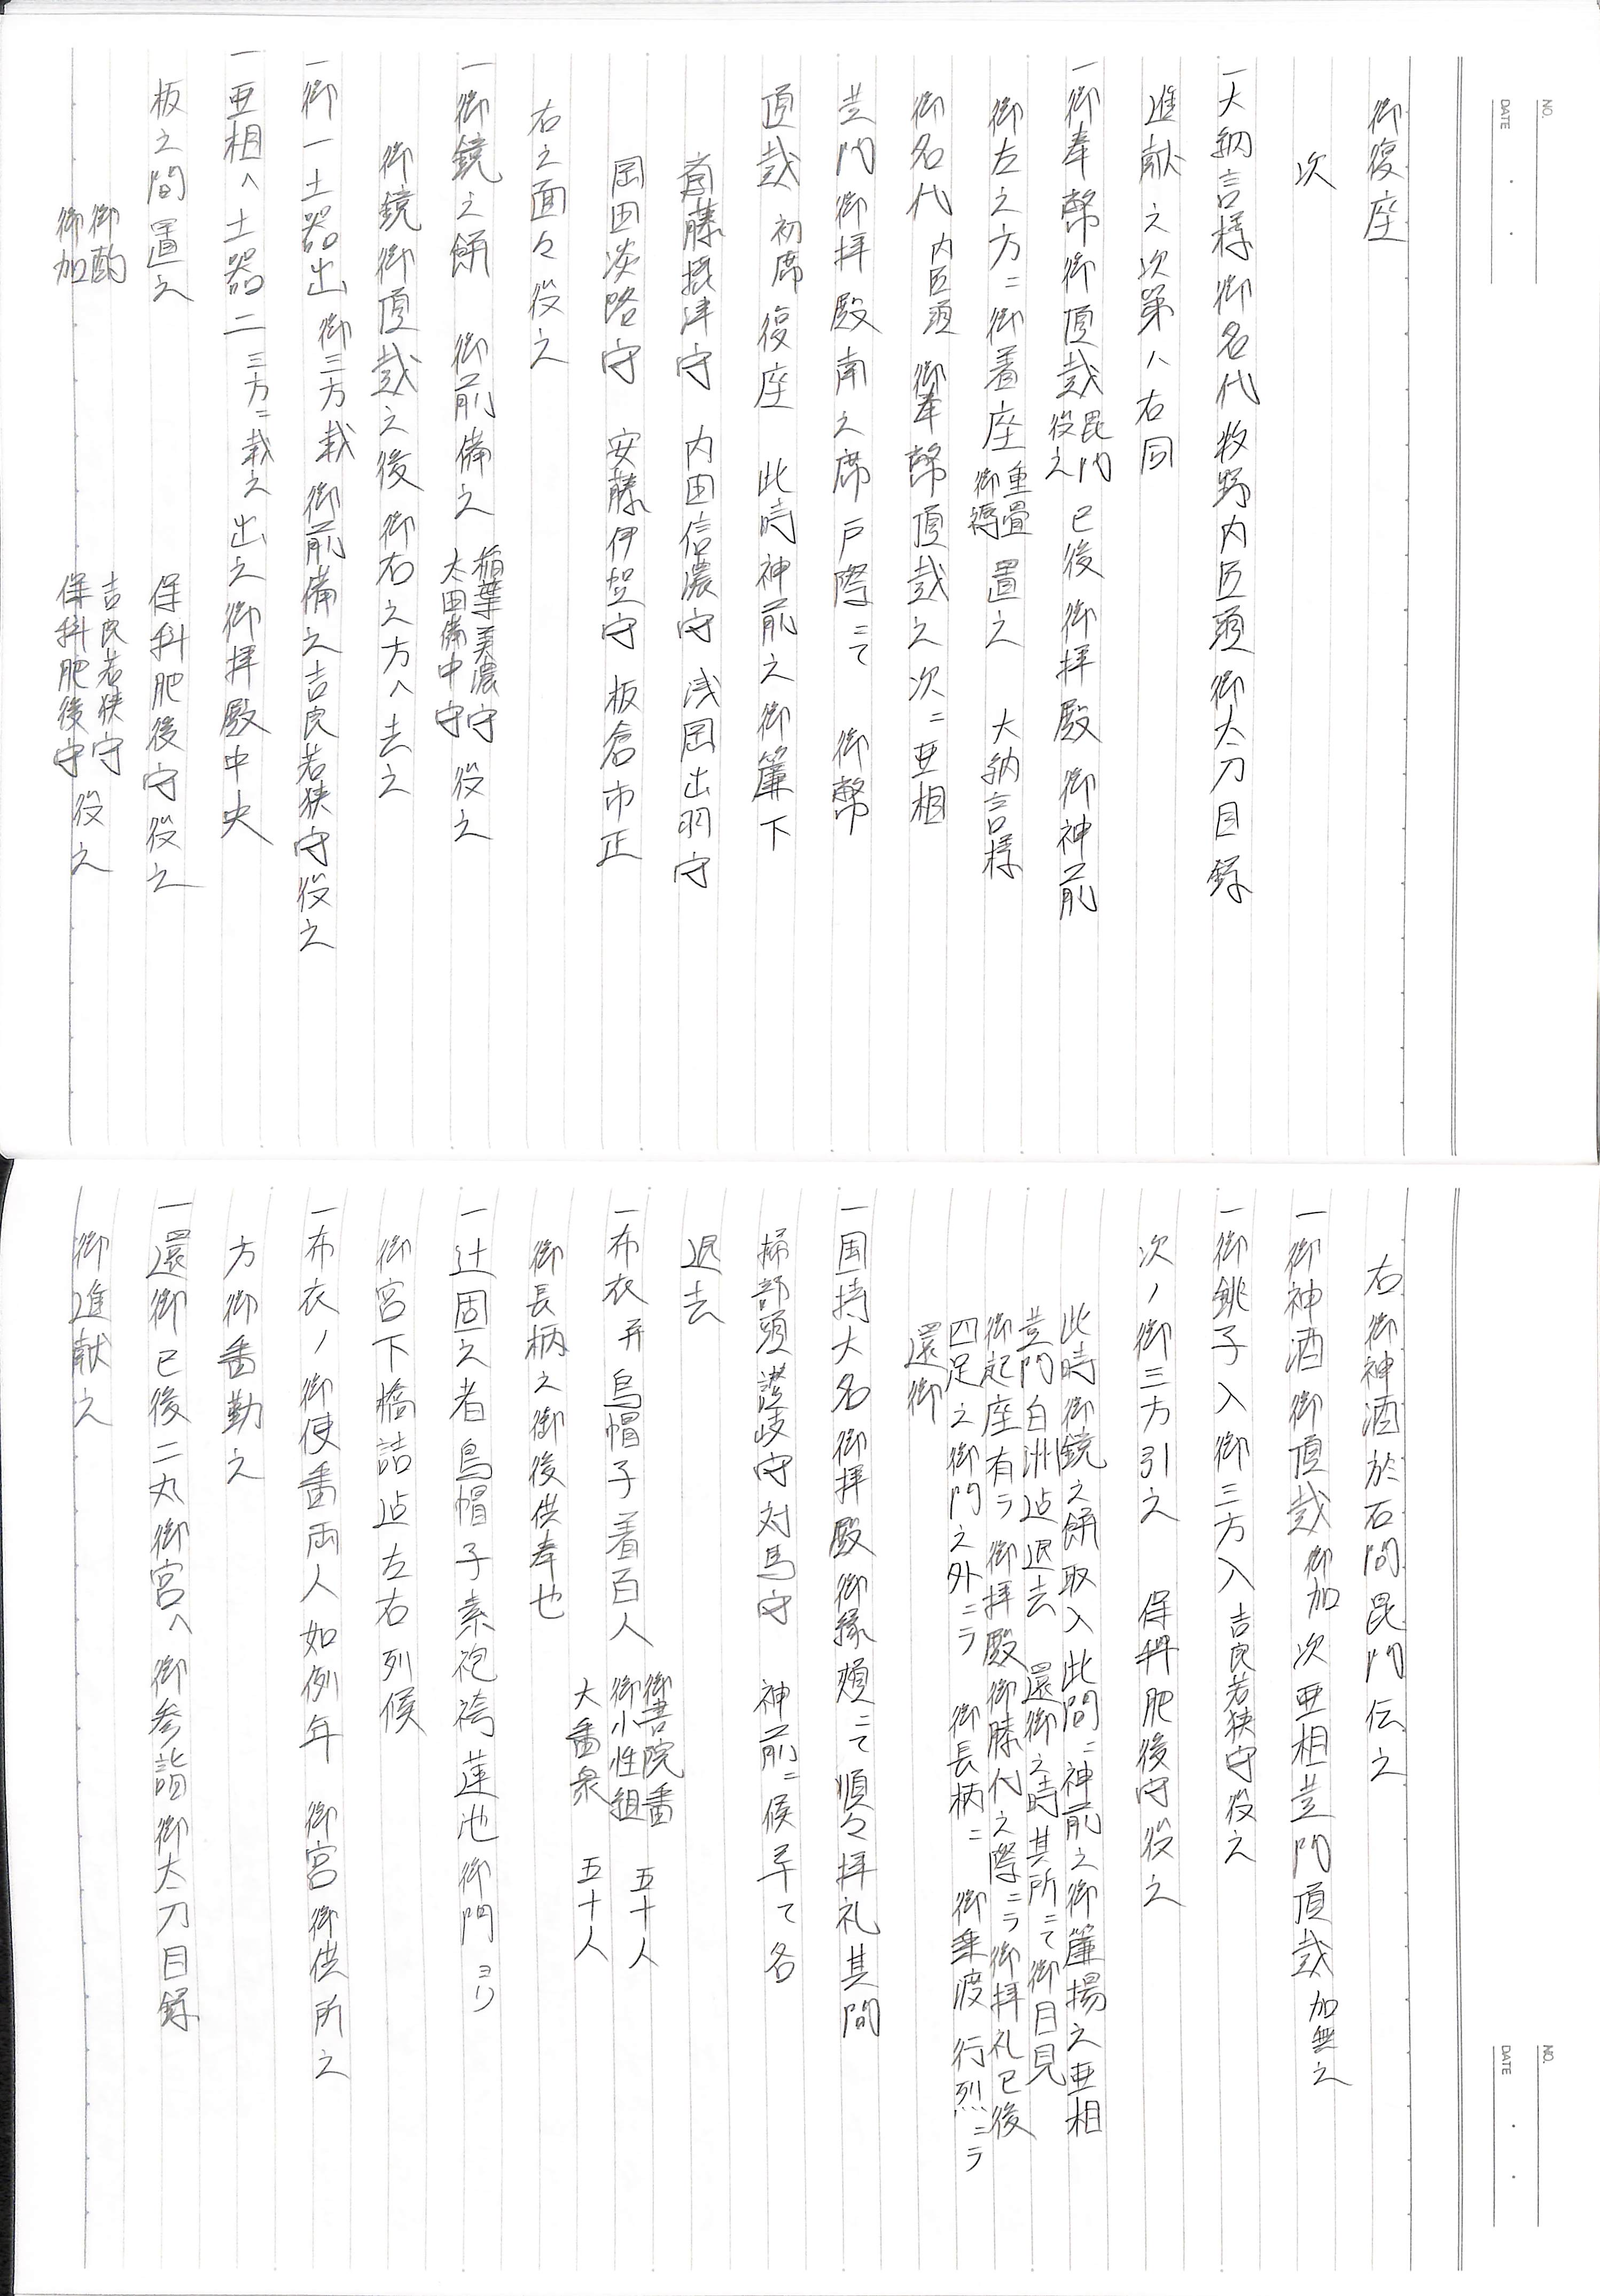 NO.
DATE
御復座
次
一大納言様御名代牧野内匠頭御太刀目録
進献之次第ハ右同
一御奉幣御頂戴毘門役之已後御拝殿御神前
御左之方ニ御着座重畳御褥置之 大納言様
御名代内匠頭御奉幣頂戴之次ニ亜相
豈門御拝殿南之席戸際ニて 御幣
頂戴 初席復座 此時神前之御簾下
首藤摂津守 内田信濃守 浅岡出羽守
岡田淡路守 安藤伊賀守 板倉市正
右之面々役之
一御鏡之餅 御前備之 稲葉美濃守 太田備中守 役之
御鏡御頂戴之後御右之方へ去之
一御一土器出御三方載御前備之吉良若狭守役之
一亜相へ土器二三方ニ載之出之御拝殿中央
板之間置之 保科肥後守役之
御酌 吉良若狭守
御加 保科肥後守 役之
NO.
DATE
右御神酒於石間毘門伝之
一御神酒御頂戴御加次亜相豈門頂戴加無之
一御銚子入御三方入吉良若狭守役之
次ノ御三方引之 保科肥後守役之
此時御鏡之餅取入此間ニ神前之御簾揚之亜相
豈門白洲迠退去 還御之時其所ニて御目見
御起座有ラ御拝殿御膝代之際ニラ御拝礼已後
四足之御門之外ニラ 御長柄ニ 御乗渡行烈ニラ
還御
一国持大名御拝殿御縁頬ニて順々拝礼其間
掃部頭讃岐守対馬守 神前ニ候早て各
退去
一布衣并烏帽子着百人 御書院番 御小性組 五十人
大番衆 五十人
御長柄之御後供奉也
一辻固之者烏帽子素袍袴蓮池御門ヨリ
御宮下橋詰迠左右列候
一布衣ノ御使番両人如例年 御宮御供所之
方御番勤之
一還御已後二丸御宮へ御参詣御太刀目録
御進献之